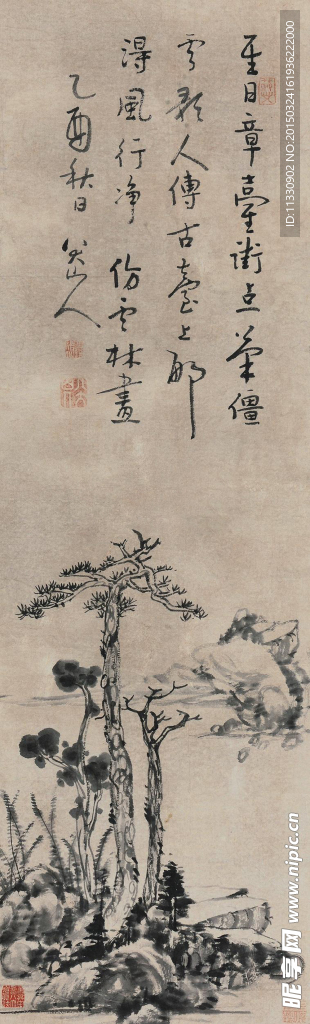 至日章臺街点筆僵
雲龍人傳古臺上那
得風行净 仿雲林畫
乙酉秋日
八大山人
ID:11330902 NO:20150324161936222000
昵享网 www.nipic.cn